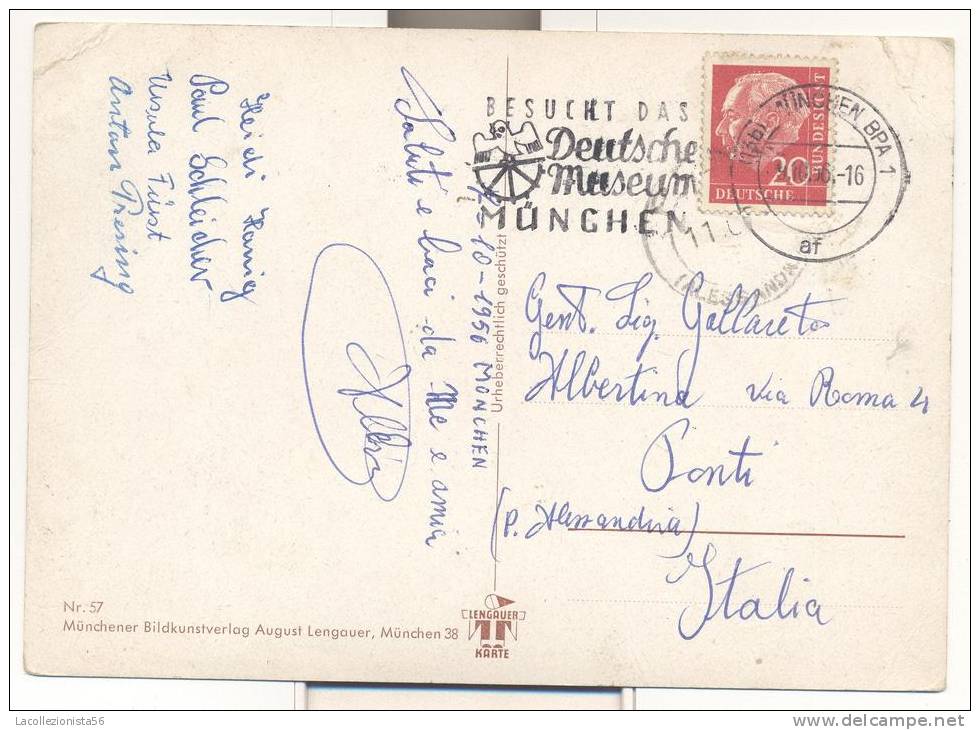 BESUCHT DAS
Deutsche
Museum
MÜNCHEN
20
DEUTSCHE
BUNDESPOST
MÜNCHEN BPA 1
-16
af
11.
Heidi
Paul Schleicher
Ursula Fürst
Anton
Saluti e baci da Me e amici
10-1956 MONCHEN
Urheberrechtlich geschützt
Gent. Sig.
Albertina Via Roma 4
Ponti
(P. Alessandria)
Italia
Nr. 57
Münchener Bildkunstverlag August Lengauer, München 38
LENGAUER
KARTE
Lacollezionista56
www.delcampe.net